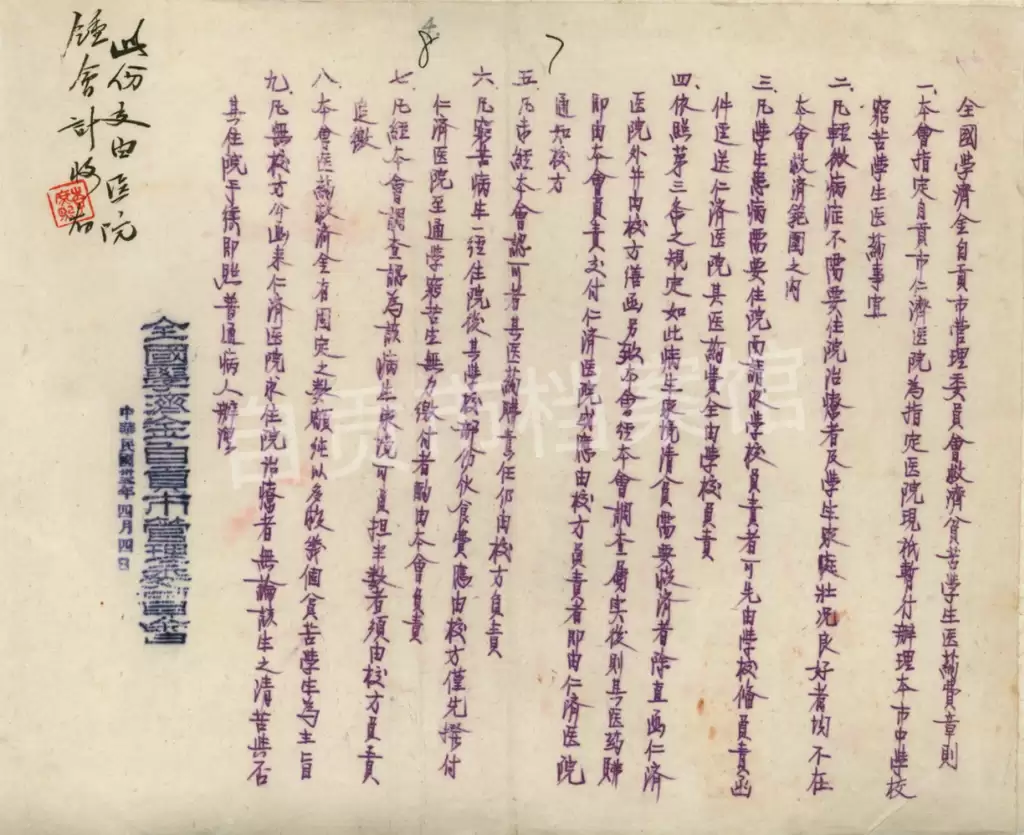 全國學濟金自貢市管理委員會救濟貧苦學生医藥費章則
一、本會指定自貢市仁濟医院為指定医院現祇暫行辦理本市中學校
窮苦學生医藥事宜
二、凡輕微病症不需要住院治療者及學生家庭壯況良好者均不在
本會救濟範圍之內
三、凡學生患病需要住院而請求學校負責者可先由學校俻負責函
件逕送仁濟医院其医藥費全由學校負責
四、依照第三条之規定如此病生家境清貧需要救濟者除直函仁濟
医院外并由校方繕函另致本會經本會調查属实後則其医药費
即由本會負責交付仁濟医院或應由校方負責者即由仁濟医院
通知校方
五、凡未經本會認可者其医藥費責任仍由校方負責
六、凡窮苦病生一經住院後其學校部份伙食費應由校方僅先撥付
仁濟医院至通學窮苦生無力繳付者酌由本會負責
七、凡經本會調查認為該病生家境可負担半數者須由校方負責
追繳
八、本會医药救濟金有固定之數額純以急救眞個貧苦學生為主旨
九、凡無校方公函来仁濟医院求住院治療者無論該生之清苦與否
其住院手續即照普通病人辦理
全國學濟金自貢市管理委員會
中華民國卅五年四月四日
此份支由医院
鍾會計收存
8 7
自贡市档案馆